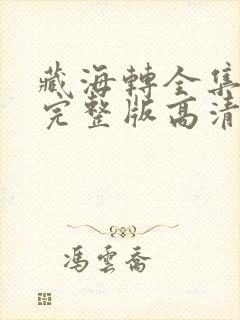 藏海轉全集
完整版高清
馮雲喬